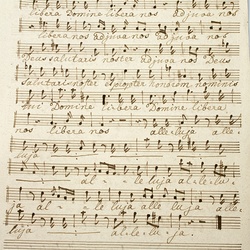 libera Domine libera nos adjuva nos
libera nos adjuva nos adjuva nos
Deus salutaris noster adjuva nos Deus
salutaris noster propter honorem nominis
tui Domine libera Domine libera
nos libera nos alleluja alle
luja
al leluja allelu
ja alleluja alleluja alle
luja alleluja.